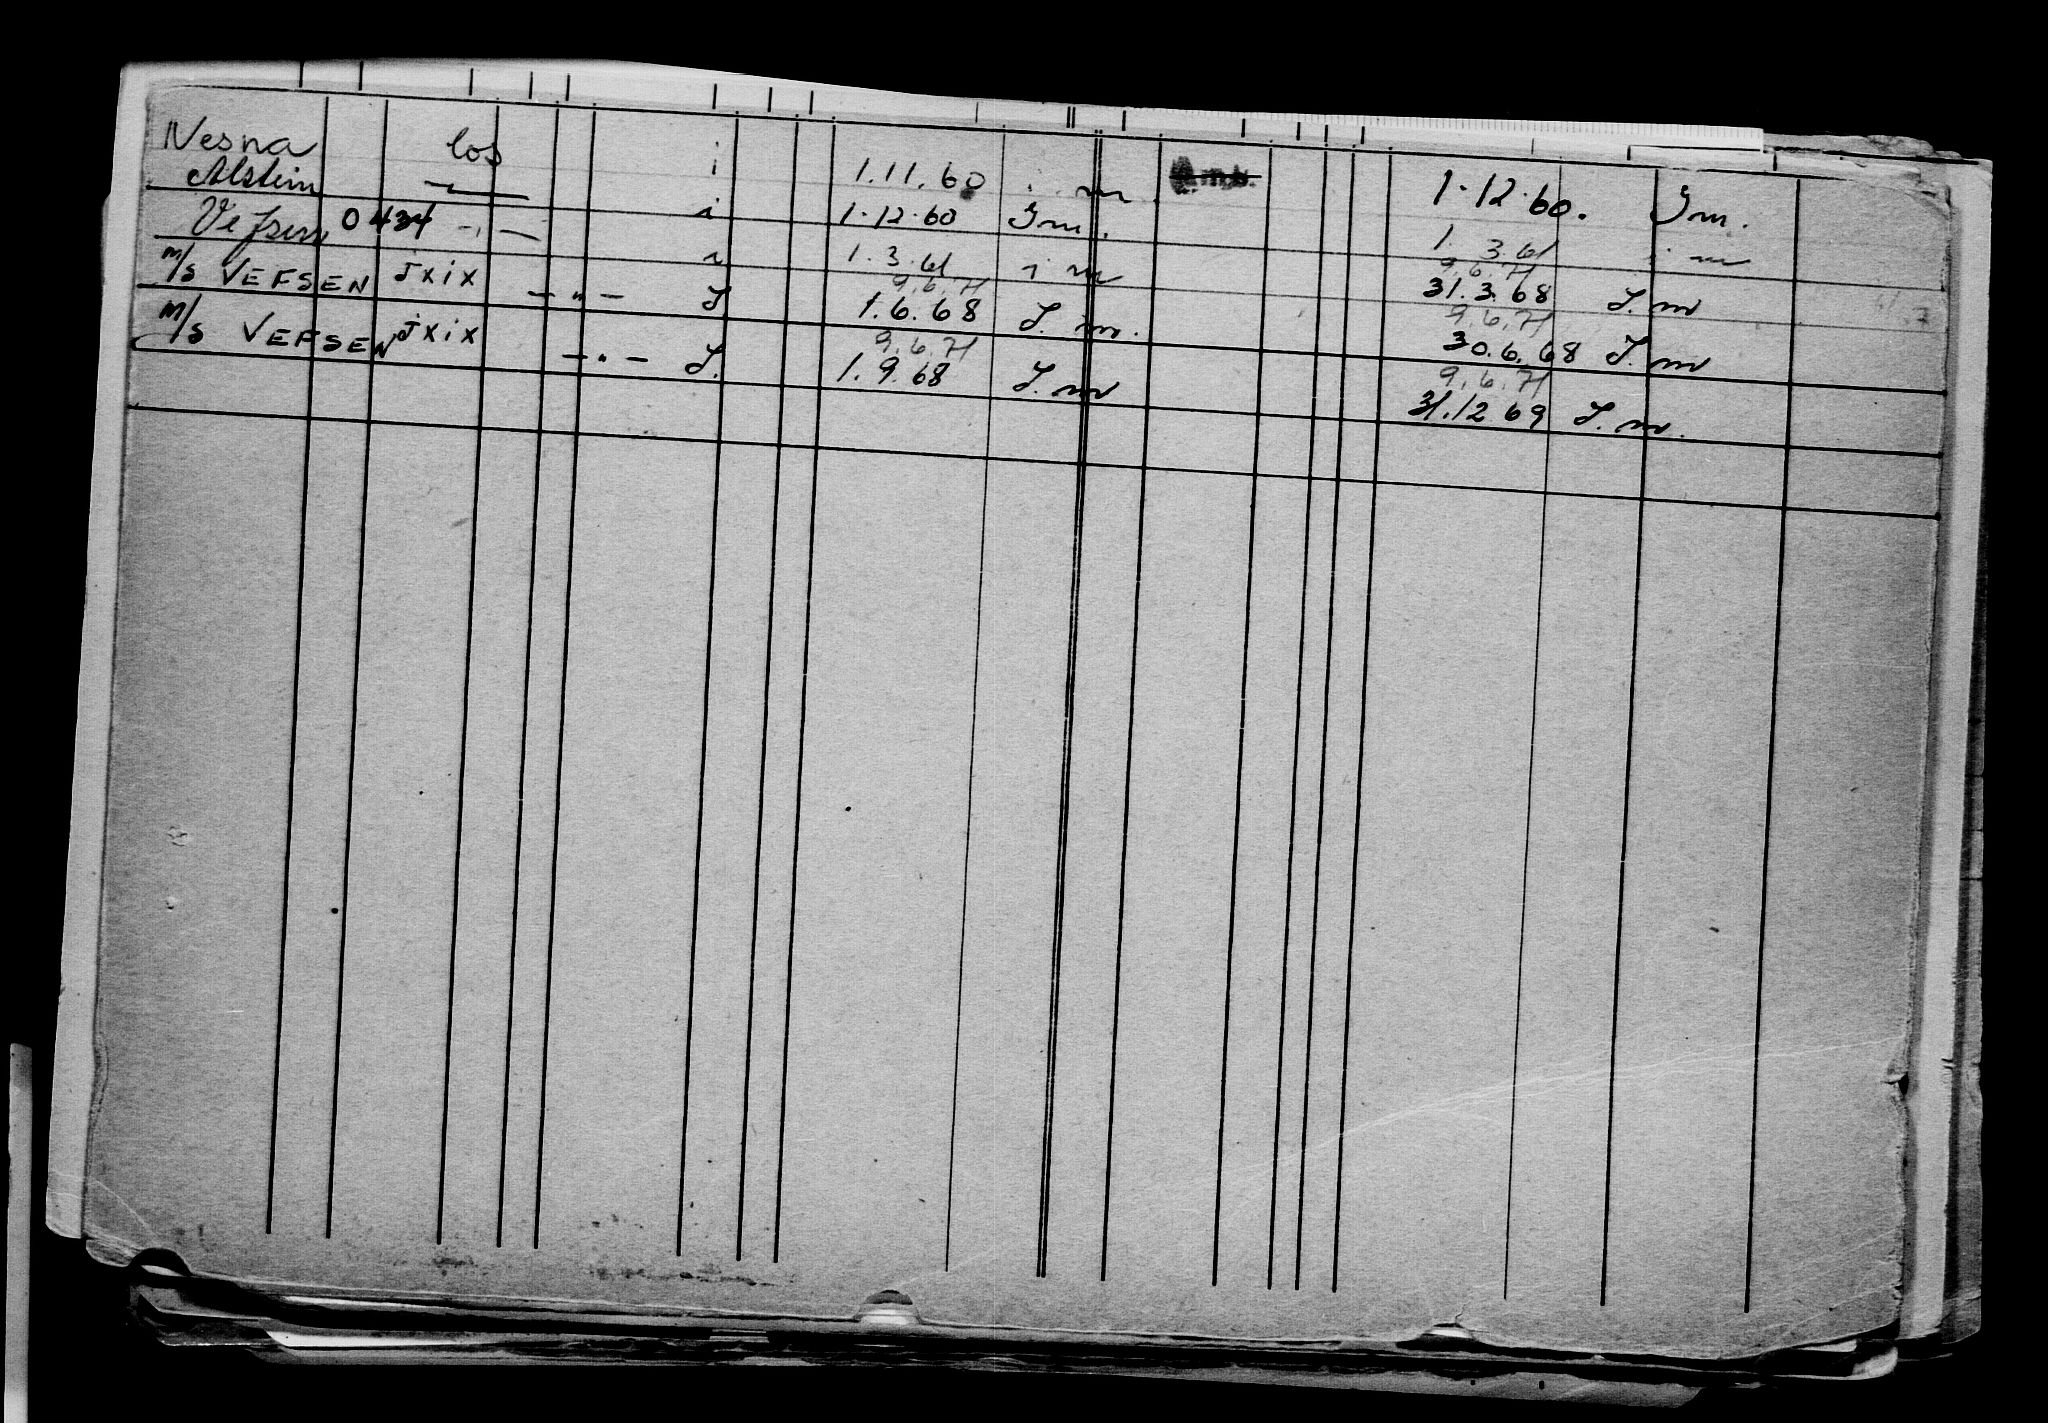 Nesna los i 1.11.60 i m 1.12.60. Jm.
Alstein i 1.12.60 Jm. 1. 3.61 i m
Vefsen 0434 -"- i 1.3.61 i m 9.6.71 31.3.68 J.m
m/s VEFSEN JXIX -"- J 9.6.71 1.6.68 J. m. 9.6.71 30.6.68 J.m
m/s VEFSEN JXIX -"- J. 9.6.71 1.9.68 J.m 9.6.71 31.12 69 J.m.